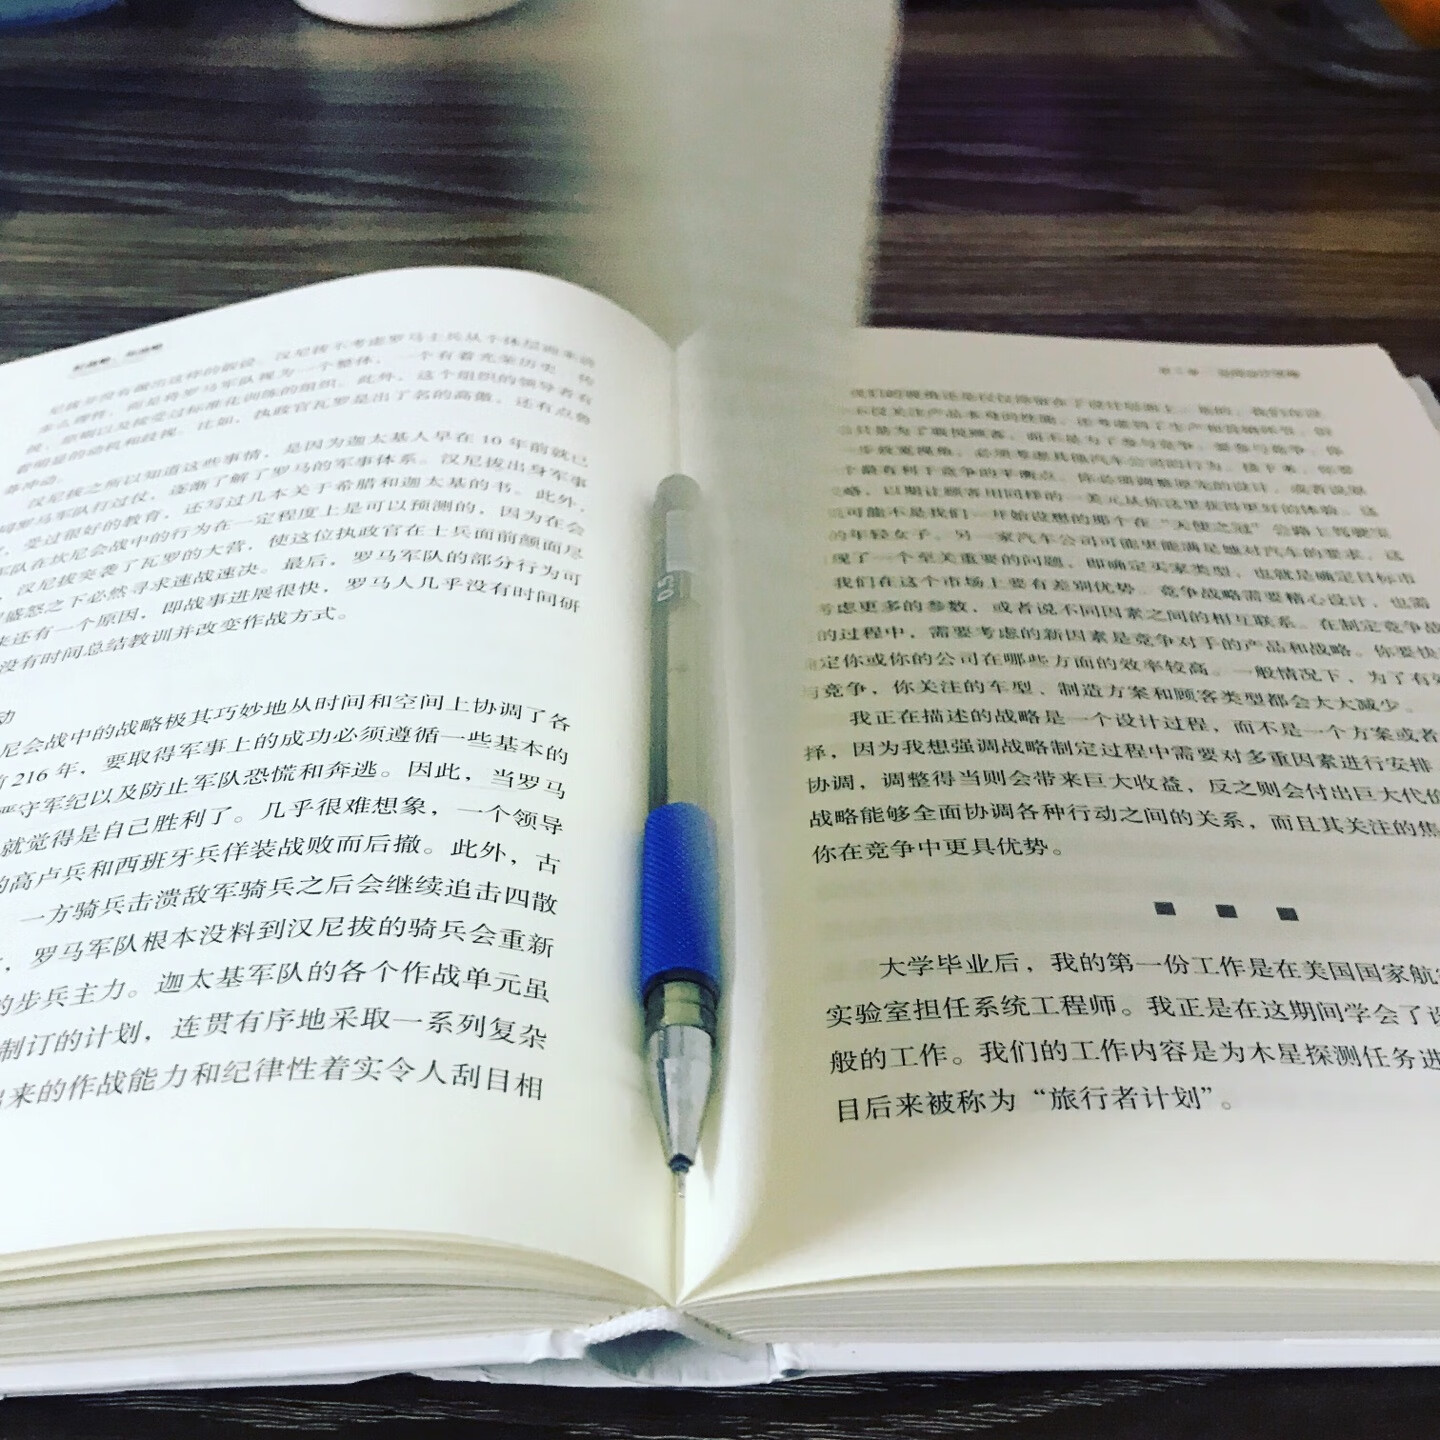 好战略，坏战略
尼拔并没有做出这样的假设。汉尼拔不考虑罗马士兵从个体层面来讲
多么彪悍，而是将罗马军队视为一个整体，一个有着光荣历史、传
统、原则以及接受过标准化训练的组织。此外，这个组织的领导者有
着明显的动机和歧视。比如，执政官瓦罗是出了名的高傲，还有点鲁
莽冲动。
汉尼拔之所以知道这些事情，是因为迦太基人早在 10 年前就已
同罗马军队打过仗，逐渐了解了罗马的军事体系。汉尼拔出身军事
，受过很好的教育，还写过几本关于希腊和迦太基的书。此外，
军队在坎尼会战中的行为在一定程度上是可以预测的，因为在会
，汉尼拔突袭了瓦罗的大营，使这位执政官在士兵面前颜面尽
盛怒之下必然寻求速战速决。最后，罗马军队的部分行为可
来还有一个原因，即战事进展很快，罗马人几乎没有时间研
没有时间总结教训并改变作战方式。
动
尼会战中的战略极其巧妙地从时间和空间上协调了各
前 216 年，要取得军事上的成功必须遵循一些基本的
严守军纪以及防止军队恐慌和奔逃。因此，当罗马
就觉得是自己胜利了。几乎很难想象，一个领导
的高卢兵和西班牙兵佯装战败而后撤。此外，古
一方骑兵击溃敌军骑兵之后会继续追击四散
，罗马军队根本没料到汉尼拔的骑兵会重新
的步兵主力。迦太基军队的各个作战单元虽
制订的计划，连贯有序地采取一系列复杂
出来的作战能力和纪律性着实令人刮目相
0.5
我们的视角还是仅仅停留在了设计层面上。虽的，我们在设
不仅关注产品本身的性能，还考虑到了生产和营销环节，但
只是为了取悦顾客，而不是为了参与竞争。要参与竞争，你
一步放宽视角，必须考虑其他汽车公司的行为。接下来，你要
个最有利于竞争的平衡点。你必须调整原先的设计，或者说思
略，以期让顾客用同样的一美元从你这里获得更好的体验。这
可能不是我们一开始设想的那个在“天使之冠”公路上驾驶宝
的年轻女子。另一家汽车公司可能更能满足她对汽车的要求，这
现了一个至关重要的问题，即确定买家类型，也就是确定目标市
我们在这个市场上要有差别优势。竞争战略需要精心设计，也需
考虑更多的参数，或者说不同因素之间的相互联系。在制定竞争战
的过程中，需要考虑的新因素是竞争对手的产品和战略。你要快
定你或你的公司在哪些方面的效率较高。一般情况下，为了有效
与竞争，你关注的车型、制造方案和顾客类型都会大大减少。
我正在描述的战略是一个设计过程，而不是一个方案或者
择，因为我想强调战略制定过程中需要对多重因素进行安排
协调，调整得当则会带来巨大收益，反之则会付出巨大代价
战略能够全面协调各种行动之间的关系，而且其关注的焦
你在竞争中更具优势。
大学毕业后，我的第一份工作是在美国国家航
实验室担任系统工程师。我正是在这期间学会了设
般的工作。我们的工作内容是为木星探测任务进
目后来被称为“旅行者计划”。